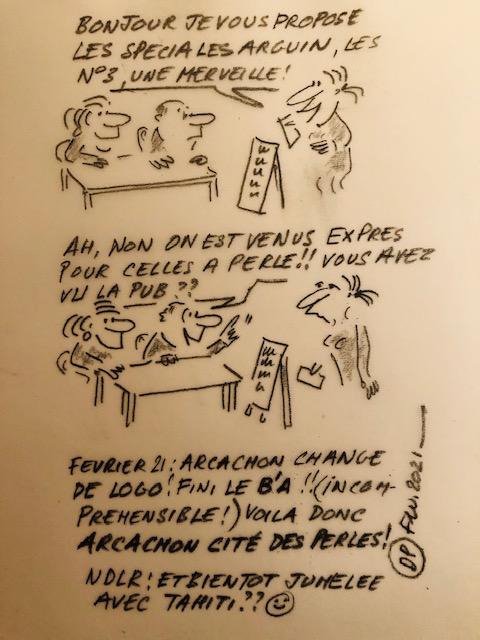 BONJOUR JE VOUS PROPOSE
LES SPECIALES ARGUIN, LES
N°3, UNE MERVEILLE!
AH, NON ON EST VENUS EXPRES
POUR CELLES A PERLE!! VOUS AVEZ
VU LA PUB ??
FEVRIER 21: ARCACHON CHANGE
DE LOGO! FINI LE B'A !! (INCOM-
PREHENSIBLE!) VOILA DONC
ARCACHON CITÉ DES PERLES!
NDLR: ET BIENTOT JUMELEE
AVEC TAHITI.?? ☺
DP